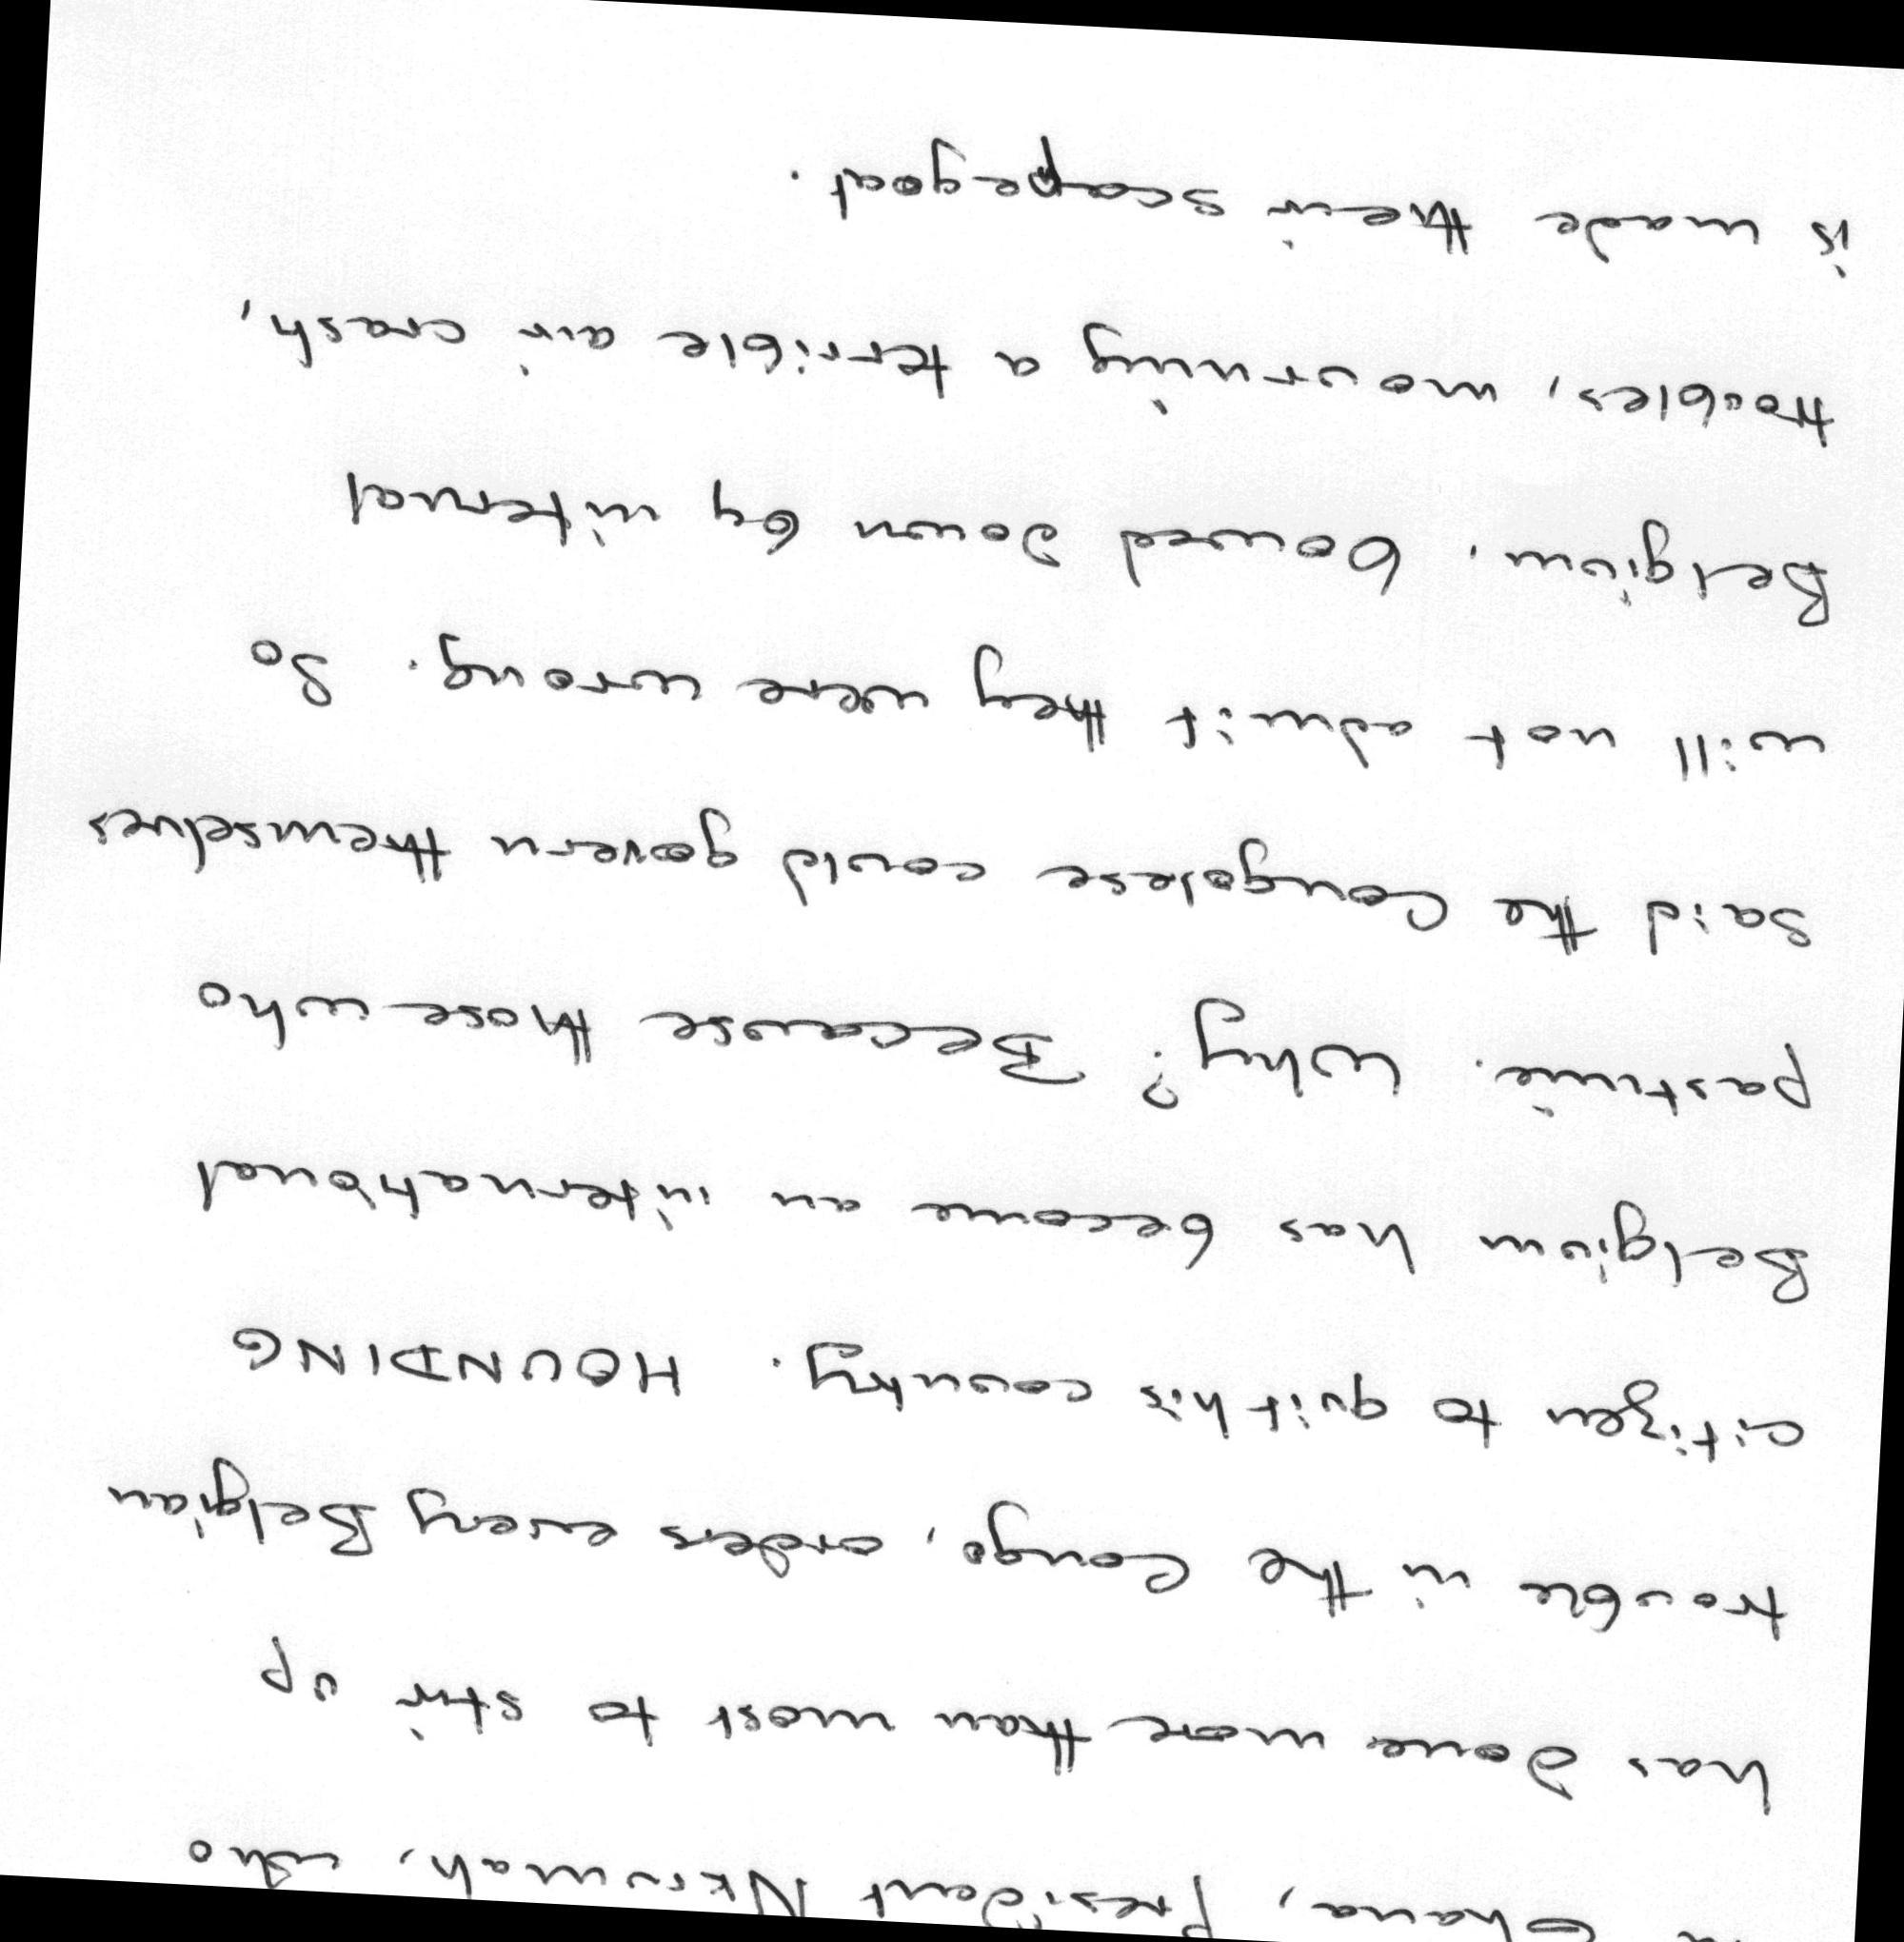 Ghana, President Nkrumah, who
has done more than most to stir up
trouble in the Congo, orders every Belgian
citizen to quit his country. HOUNDING
Belgium has become an international
pastime. Why? Because those who
said the Congolese could govern themselves
will not admit they were wrong. So
Belgium, bowed down by internal
troubles, mourning a terrible air crash,
is made their scapegoat.